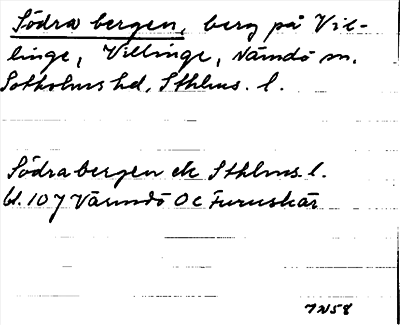 Södra bergen, berg på Vil-
linge, Villinge, Nämdö sn.
Sotholms hd, Sthlms. l.
Södra bergen ek Sthlms l.
bl. 107 Värmdö Oc Furuskär
7258